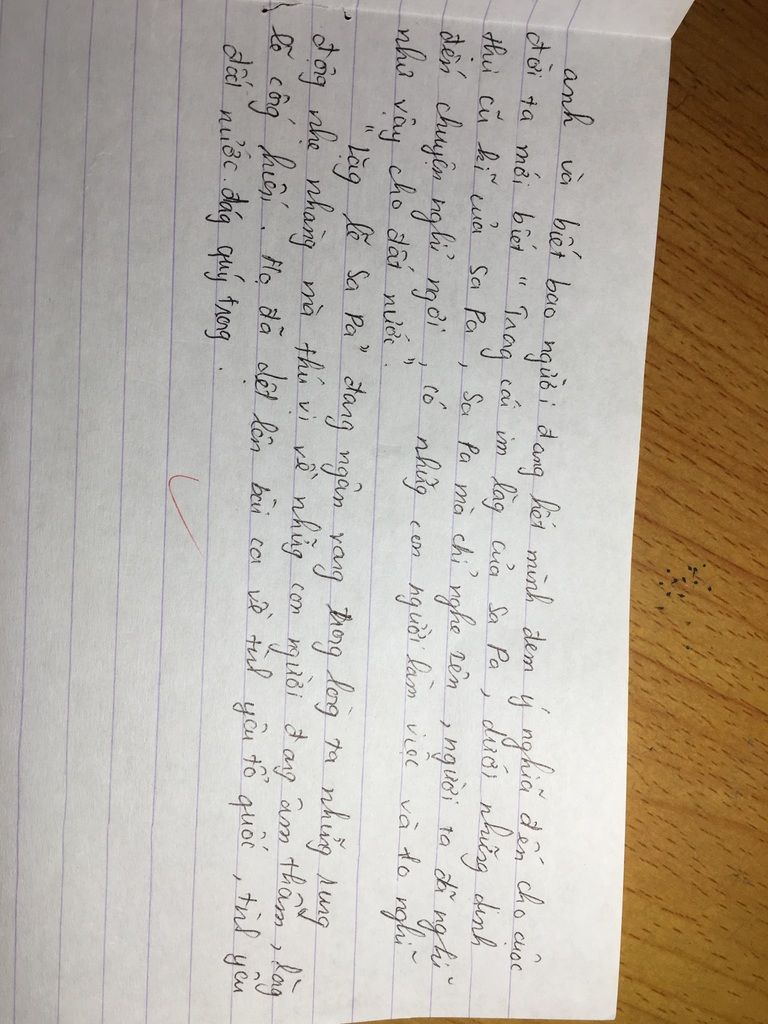 anh và biết bao người đang hết mình đem ý nghĩa đến cho cuộc
đời ta mới biết " Trog cái im lặg của Sa Pa, dưới những dinh
thự cũ kĩ của Sa Pa, Sa Pa mà chỉ nghe tên, người ta đã nghĩ
đến chuyện nghỉ ngơi, có những con người làm việc và lo nghĩ
như vậy cho đất nước".
"Lặg lẽ Sa Pa" đang ngân vang trog lòg ta nhữg rung
độg nhẹ nhàng mà thú vị về nhữg con người đag âm thầm, lặg
lẽ cốg hiến. Họ đã dệt lên bài ca về tình yêu tổ quốc, tình yêu
đất nước đág quý trọg.